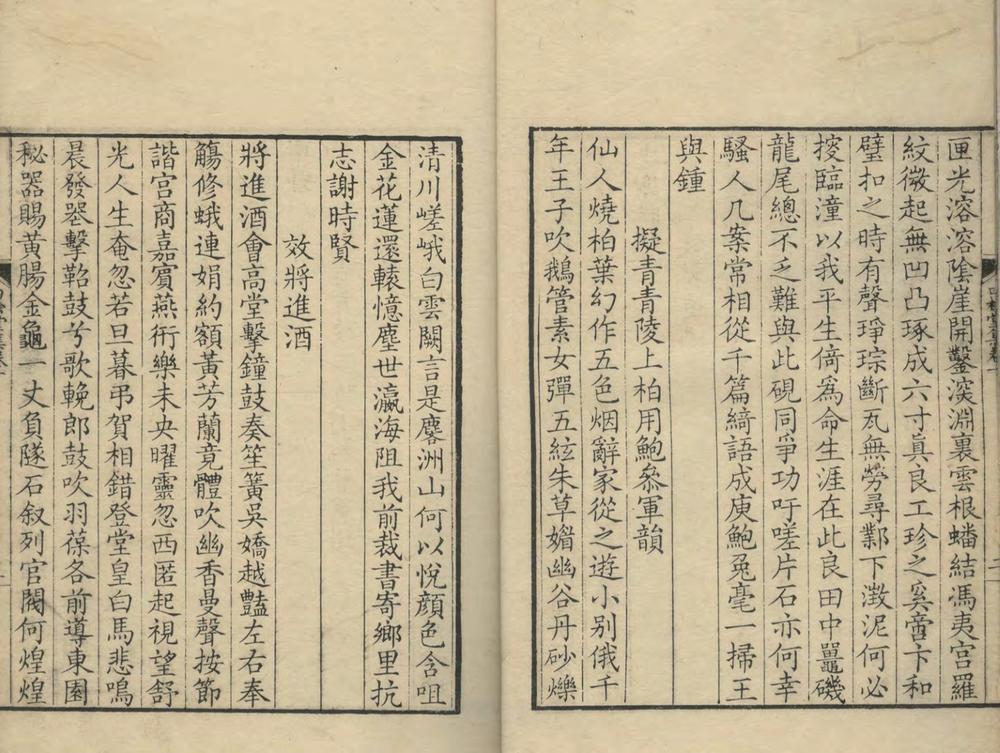 匣光溶溶陰崖開鑿深淵裏雲根蟠結馮夷宮羅
紋微起無凹凸琢成六寸眞良工珍之奚啻卞和
璧扣之時有聲琤琮斷瓦無勞尋鄴下澂泥何必
挍臨潼以我平生倚爲命生涯在此良田中鼉磯
龍尾總不乏難與此硯同爭功吁嗟片石亦何幸
騷人几案常相從千篇綺語成庾鮑兔毫一掃王
與鍾
擬青青陵上柏用鮑叅軍韻
仙人燒柏葉幻作五色烟辭家從之遊小别俄千
年王子吹鵝管素女彈五絃朱草媚幽谷丹砂爍
清川嵯峨白雲闕言是麐洲山何以悅顏色含咀
金花蓮還轅憶塵世瀛海阻我前裁書寄鄉里抗
志謝時賢
效將進酒
將進酒會高堂擊鐘鼓奏笙簧吳嬌越豔左右奉
觴修蛾連娟約額黃芳蘭竟體吹幽香曼聲按節
諧宮商嘉賓燕衎樂未央曜靈忽西匿起視望舒
光人生奄忽若旦暮弔賀相錯登堂皇白馬悲鳴
晨發㗬擊鞀鼓兮歌輓郎鼓吹羽葆各前導東園
秘器賜黃腸金龜一丈負隧石叙列官閥何煌煌